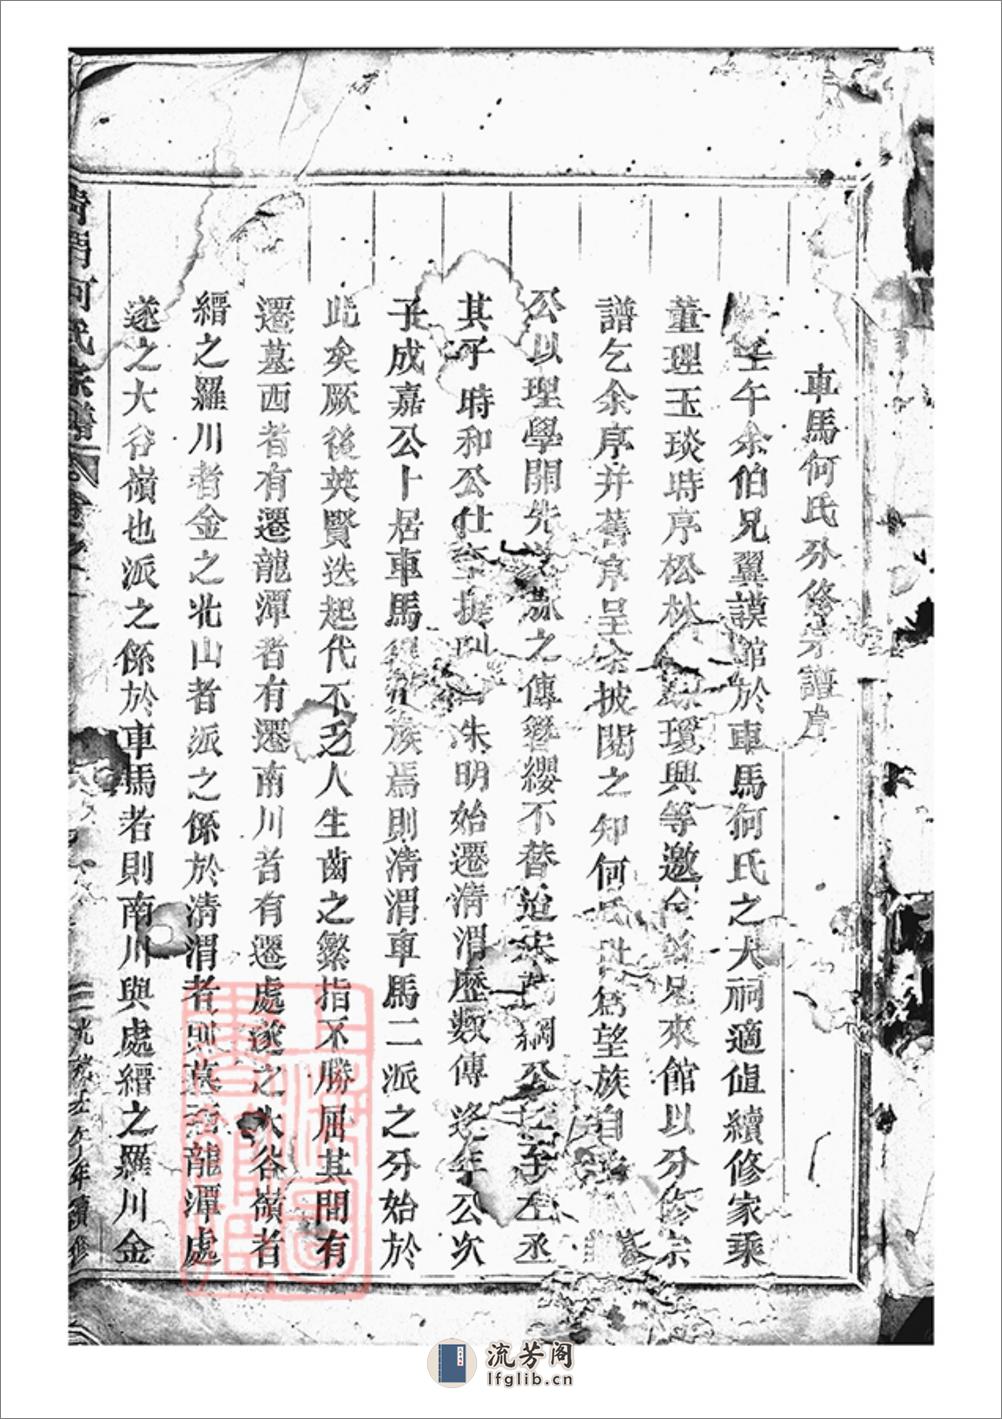 車馬何氏分修宗譜序
壬午余伯兄翼謨館於車馬何氏之大祠適值續修家乘
董理玉琰時序松林瓊興等邀兄來館以分修宗
譜乞余序并舊序呈余披閱之知何氏世爲望族自
公以理學開先之傳簪纓不替迨宋綱公仕至左丞
其子時和公仕至提刑朱明始遷清渭歷數傳逢年公次
子成嘉公卜居車馬族焉則清渭車馬二派之分始於
此矣厥後英賢迭起代不乏人生齒之繁指不勝屈其間有
遷墓西者有遷龍潭者有遷南川者有遷處遂之大谷嶺者
縉之羅川者金之北山者派之係於清渭者則墓西龍潭處
遂之大谷嶺也派之係於車馬者則南川與處縉之羅川金
清渭何氏宗譜
光緒年續修
上海圖書館藏
流芳阁
lfglib.cn